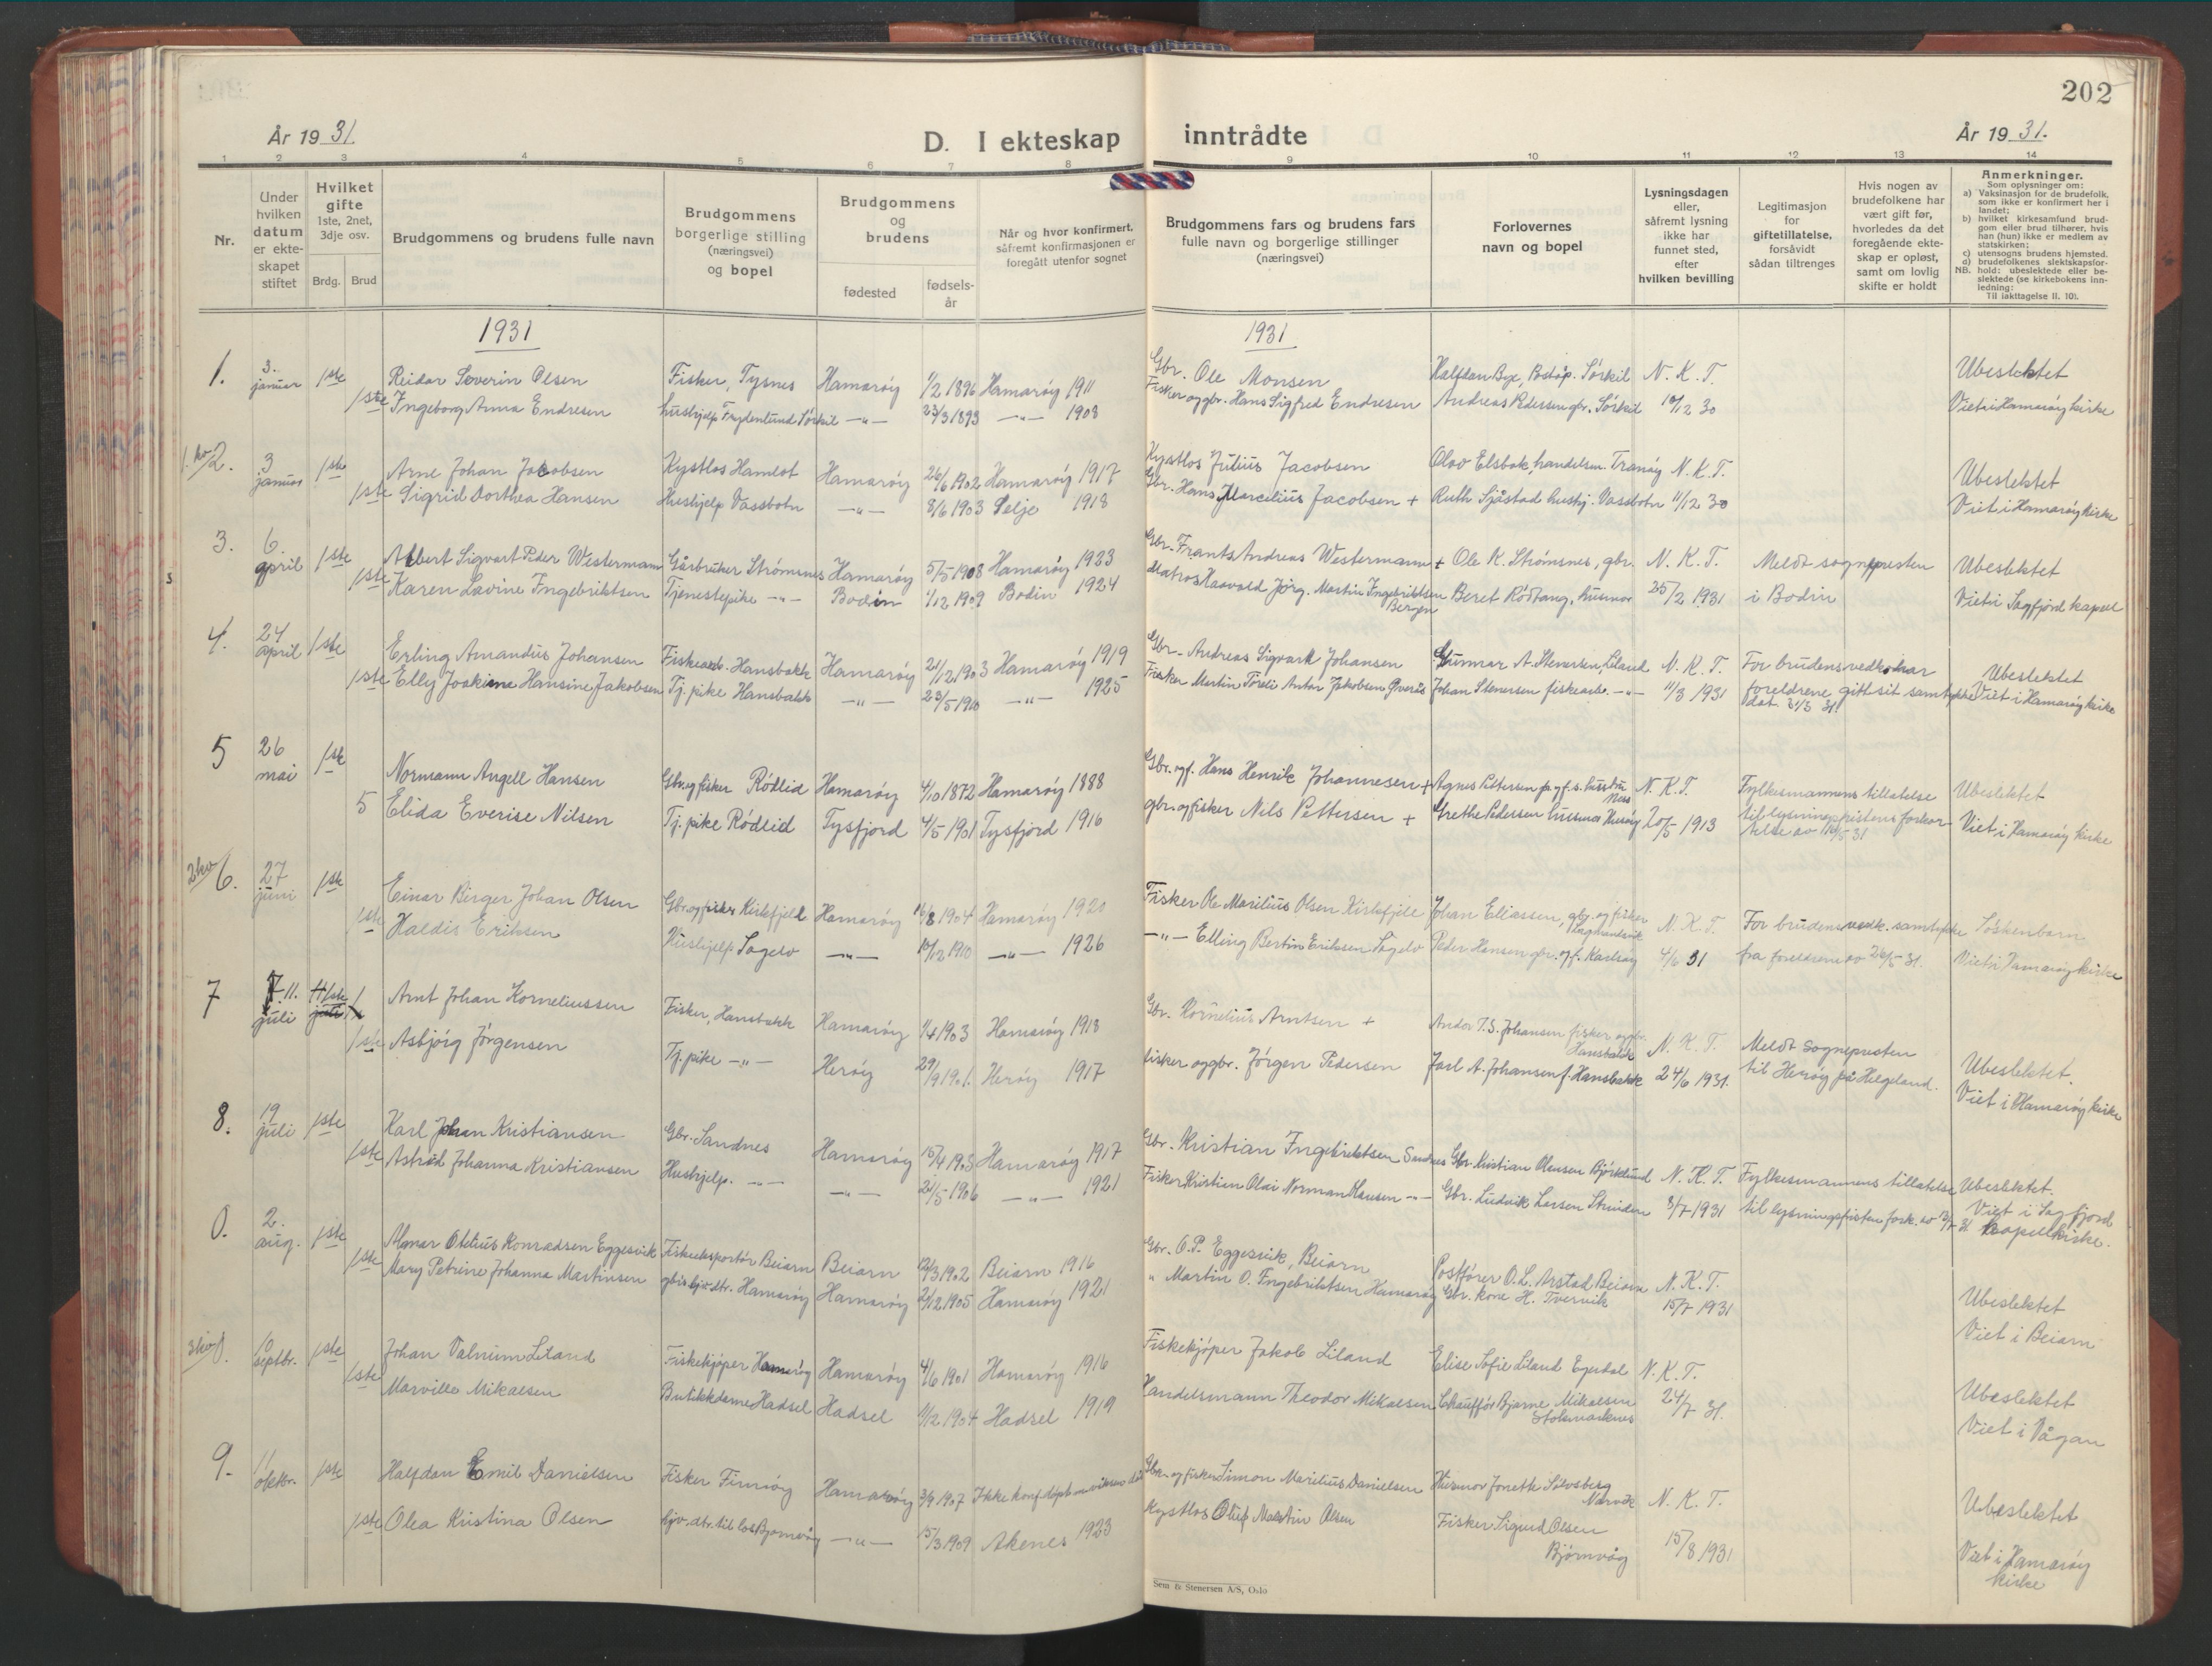 202
År 1931.
D. I ekteskap inntrådte
År 1931.
1 2 3 4 5 6 7 8 9 10 11 12 13 14
Nr.
Under hvilken datum er ekteskapet stiftet
Hvilket gifte 1ste, 2net, 3dje osv.
Brdg. Brud
Brudgommens og brudens fulle navn
Brudgommens borgerlige stilling (næringsvei) og bopel
Brudgommens og brudens
fødested
fødsels-år
Når og hvor konfirmert, såfremt konfirmasjonen er foregått utenfor sognet
Brudgommens fars og brudens fars fulle navn og borgerlige stillinger (næringsvei)
Forlovernes navn og bopel
Lysningsdagen eller, såfremt lysning ikke har funnet sted, efter hvilken bevilling
Legitimasjon for giftetillatelse, forsåvidt sådan tiltrenges
Hvis nogen av brudefolkene har vært gift før, hvorledes da det foregående ekteskap er opløst, samt om lovlig skifte er holdt
Anmerkninger.
Som oplysninger om:
a) Vaksinasjon for de brudefolk, som ikke er konfirmert her i landet;
b) hvilket kirkesamfund brudgom eller brud tilhører, hvis han (hun) ikke er medlem av statskirken;
c) utensogns brudens hjemsted.
d) brudefolkenes slektskapsforhold: ubeslektede eller beslektede (se kirkebokens innledning:
NB. Til iakttagelse II. 10).
1931
1931
1. 3. januar 1ste Reidar Severin Olsen Fisker, Tysnes Hamarøy 1/2 1896 Hamarøy 1911 Gbr. Ole Monsen Halfdan Bye, Sørkil N. K. T. Ubeslektet
1ste Ingeborg Anna Endresen hushjelp Frydenlund Sørkil -"- 23/3 1893 -"- 1908 Fisker og gbr. Hans Sigfred Endresen Andreas Pedersen gbr. Sørkil 10/12 30 Viet i Hamarøy kirke
2. 3 januar 1ste Arne Johan Jakobsen Kystlos Hamlot Hamarøy 26/6 1902 Hamarøy 1917 Kystlos Julius Jacobsen Olav Elsbak, handelsm. Tranøy N. K. T. Ubeslektet
1ste Sigrid Dorthea Hansen Hushjelp Vassbotn -"- 8/6 1903 Selje 1918 Gbr. Hans Marcelius Jacobsen + Ruth Sjåstad hushj. Vassbotn 11/12 30 Viet i Hamarøy kirke
3. 6. april 1ste Albert Sigvart Peder Westermann Gårbruker Strømsnes Hamarøy 5/5 1908 Hamarøy 1923 Gbr. Frants Andreas Westermann + Ole K. Strømsnes, gbr. N. K. T. Meldt sognepresten Ubeslektet
1ste Karen Lovine Ingebriktsen Tjenestepike -"- Bodin 1/12 1909 Bodin 1924 Matros Haavald Jørg. Martin Ingebriktsen Bergen Beret Rødtang, husmor 25/2 1931 i Bodin Viet i Sagfjord kapell
4. 24 april 1ste Erling Amandus Johansen Fiskearb. Hansbakk Hamarøy 21/12 1903 Hamarøy 1919 Gbr. Andreas Sigvart Johansen Gunnar A. Stenersen, Liland N. K. T. For brudens vedkomar Ubeslektet
1ste Elly Joakime Hansine Jakobsen Tj. pike Hansbakk -"- 23/5 1910 -"- 1925 Fisker Martin Antor Jakobsen Johan Stenersen fiskearb. -"- 11/3 1931 foreldrene gitt sit samtykke dat. 31/3 31. Viet i Hamarøy kirke
5 26 mai 1ste Normann Angell Hansen Gbr. og fisker Rødlid Hamarøy 4/10 1872 Hamarøy 1888 Gbr. og f. Hans Henrik Johannesen + Agnes Pettersen hustru Ness N. K. T. Fylkesmannens tillatelse Ubeslektet
5 Elida Everise Nilsen Tj. pike Rødlid Tysfjord 4/5 1901 Tysfjord 1916 gbr. og fisker Nils Pettersen + Grethe Pedersen husmor 20/5 1913 til lysningsfristens forkortelse av 18/5 31 Viet i Hamarøy kirke
6. 27 juni 1ste Einar Birger Johan Olsen Gbr. og fisker Kirkefjell Hamarøy 16/8 1904 Hamarøy 1920 Fisker Ole Marilius Olsen Kirkefjell Johan Eliassen, gbr. og fisker N. K. T. For brudens vedk. samtykke Søskenbarn
1ste Haldis Eriksen Hushjelp Sagelv -"- 10/12 1910 -"- 1926 -"- Elling Bertin Eriksen Sagelv Peder Hansen gbr. og f. Karlsøy 4/6 31 fra foreldrene av 26/5 31. Viet i Hamarøy kirke
7 11. juli 1ste Arnt Johan Korneliussen Fisker, Hansbakk Hamarøy 1/4 1903 Hamarøy 1918 Gbr. Kornelius Arntsen + Andor T. S. Johansen fisker og gbr. Hansbakk N. K. T. Meldt Sognepresten Ubeslektet.
1ste Asbjørg Jørgensen Tj. pike -"- Herøy 29/9 1901. Herøy 1917 fisker og gbr. Jørgen Pedersen Jarl A. Johansen f. Hansbakk 24/6 1931. til Herøy på Helgeland. Viet i Hamarøy kirke
8. 19 juli 1ste Karl Johan Kristiansen Gbr. Sandnes Hamarøy 15/4 1903 Hamarøy 1917 Gbr. Kristian Ingebriktsen Sandnes Gbr. Kristian Olausen Bjørklund N. K. T. Fylkesmannens tillatelse Ubeslektet.
1ste Astrid Johanna Kristiansen Hushjelp. -"- -"- 21/5 1906 -"- 1921 Fisker Kristian Olai Norman Hansen -"- Gbr. Ludvik Larsen Strinden 3/7 1931 til lysningsfristen fork. av 13/7 31 Viet i Sagfjord kapellkirke.
0. 2. aug. 1ste Almar Otelius Konradsen Eggesvik Fiskeeksportør Beiarn Beiarn 12/3 1902 Beiarn 1916 Gbr. O. P. Eggesvik, Beiarn Postfører O. L. Arstad Beiarn N. K. T. Ubeslektet
1ste Mary Petrine Johanna Martinsen Hamarøy Hamarøy 21/12 1905 Hamarøy 1921 " Martin O. Ingebriktsen Hamarøy Gbr. kone H. Tvervik 15/7 1931 Viet i Beiarn
0. 10 septbr. 1ste Johan Valnum Liland Fiskekjøper Hamarøy Hamarøy 4/6 1901 Hamarøy 1916 Fiskekjøper Jakob Liland Elise Sofie Liland N. K. T. Ubeslektet
1ste Marville Mikalsen Butikkdame Hadsel Hadsel 1/12 1904 Hadsel 1919 Handelsmann Theodor Mikalsen Chauffør Bjarne Mikalsen Stokmarknes 24/7 31. Viet i Vågan
9. 11 oktbr. 1ste Halfdan Emil Danielsen Fisker Finnøy Hamarøy 3/9 1907 Ikke konf. døpt Gbr. og fisker Simon Marilius Danielsen Husmor Jonette Solvsberg Narvik N. K. T. Ubeslektet
1ste Olea Kristina Olsen hjv. dtr. til los Bjørnvåg -"- 15/3 1909 Akenes 1923 Kystlos Oluf Martin Olsen Fisker Sigurd Olsen Bjørnvåg 15/8 1931 Viet i Hamarøy kirke
Sem & Stenersen A/S, Oslo